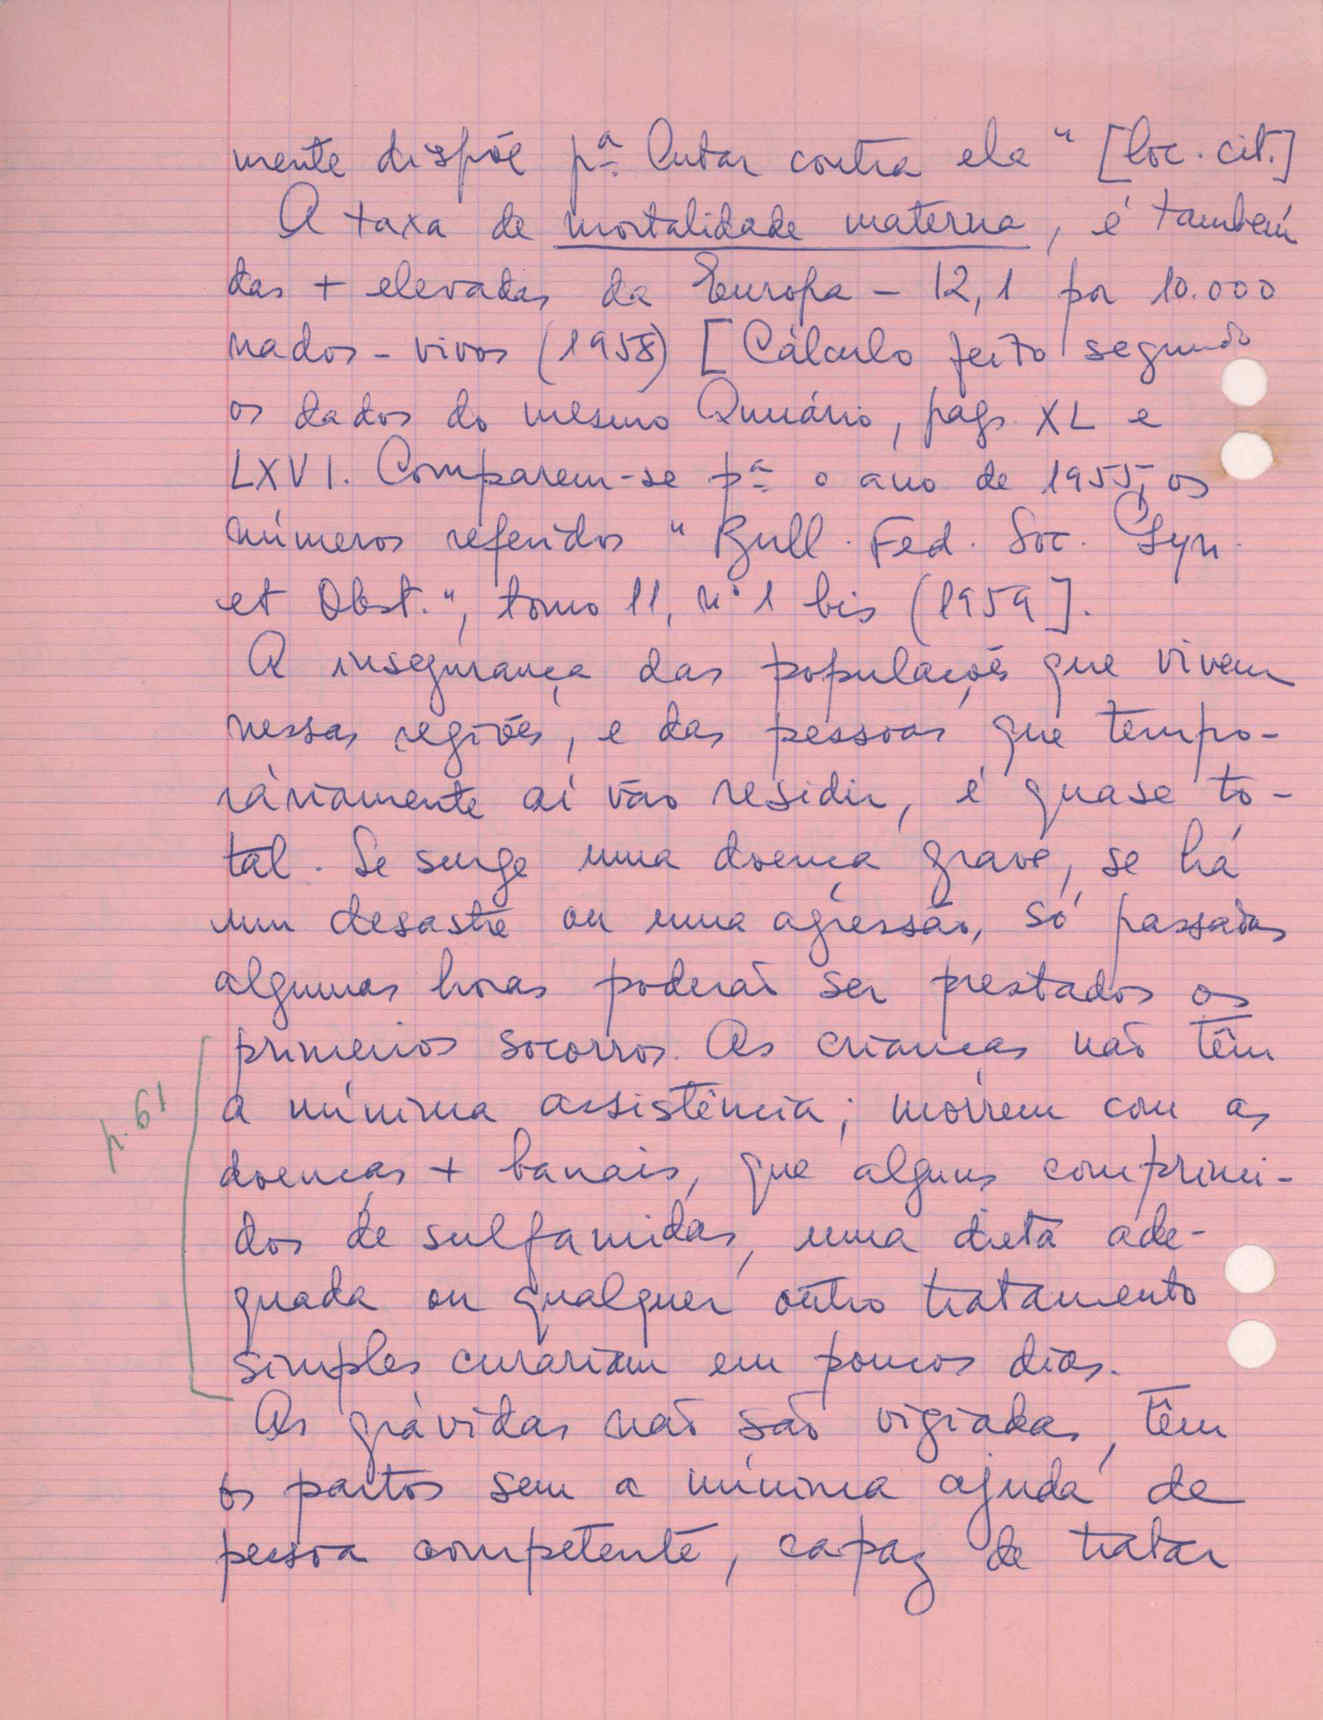 mente dispõe pª lutar contra ela" [loc. cit.]
A taxa de mortalidade materna, é também
das + elevadas da Europa - 12,1 por 10.000
nados-vivos (1958) [Cálculo feito segundo
os dados do mesmo Anuário, pags. XL e
LXVI. Comparem-se pª o ano de 1955, os
números referidos "Bull. Fed. Soc. Gyn.
et Obst.", tomo 11, nº 1 bis (1959].
A insegurança das populações que vivem
nessas regiões, e das pessoas que tempo-
ràriamente aí vão residir, é quase to-
tal. Se surge uma doença grave, se há
um desastre ou uma agressão, só passadas
algumas horas poderão ser prestados os
primeiros socorros. As crianças não têm
a mínima assistência; morrem com as
doenças + banais, que alguns comprimi-
dos de sulfamidas, uma dieta ade-
quada ou qualquer outro tratamento
simples curariam em poucos dias.
p. 61
As grávidas não são vigiadas, têm
os partos sem a mínima ajuda de
pessoa competente, capaz de tratar